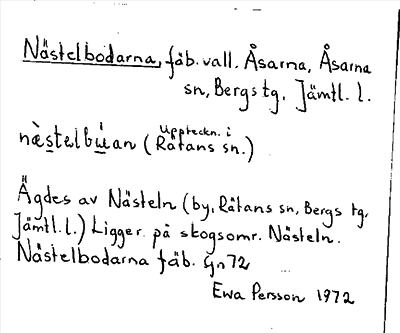 Nästelbodarna, fäb.vall. Åsarna, Åsarna
sn, Bergs tg, Jämtl. l.
næ̀stelbu̇́an (Uppteckn. i
Rätans sn.)
Ägdes av Nästeln (by, Rätans sn, Bergs tg,
Jämtl. l.) Ligger på skogsomr. Nästeln.
Nästelbodarna fäb. Gn72
Ewa Persson 1972